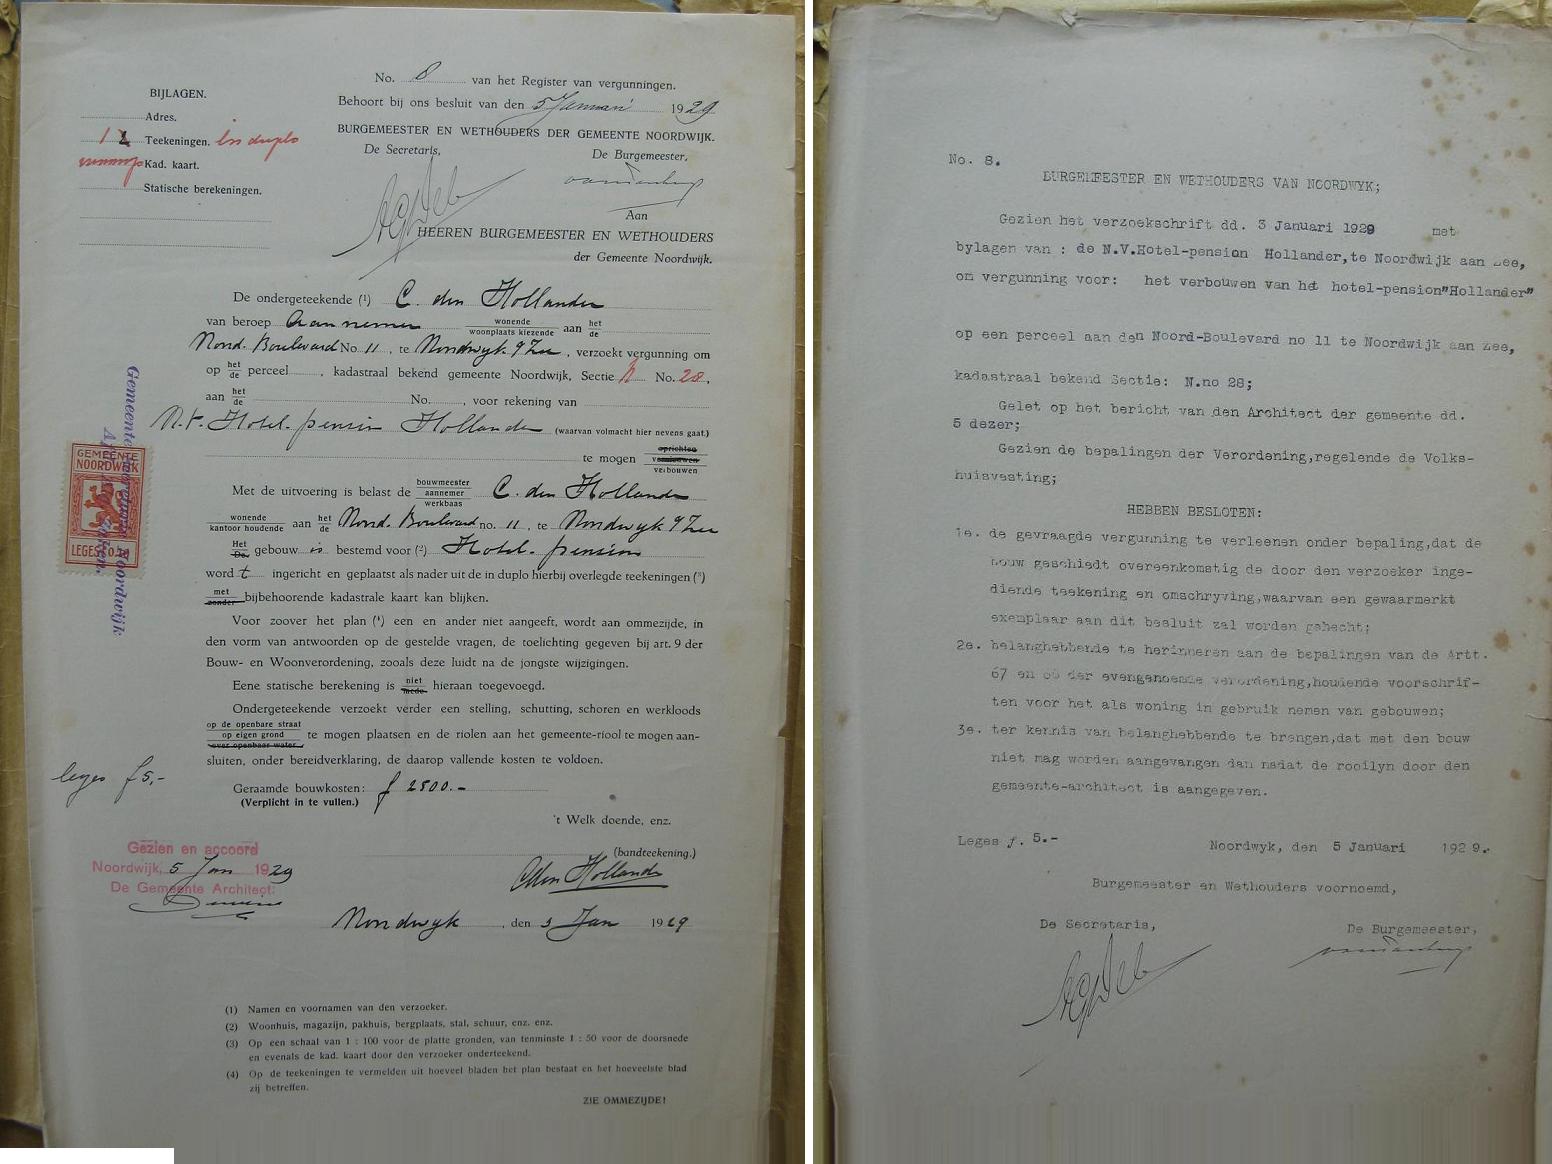 No. 8 van het Register van vergunningen.
Behoort bij ons besluit van den 5 Januari 1929
BURGEMEESTER EN WETHOUDERS DER GEMEENTE NOORDWIJK.
De Secretaris, De Burgemeester,
BIJLAGEN.
Adres.
1 Teekeningen. in duplo
Kad. kaart.
Statische berekeningen.
Aan
HEEREN BURGEMEESTER EN WETHOUDERS
der Gemeente Noordwijk.
De ondergeteekende (1) C. den Hollander
van beroep Aannemer wonende woonplaats kiezende aan het de
Noord. Boulevard No 11, te Noordwyk a/ Zee, verzoekt vergunning om
op het de perceel, kadastraal bekend gemeente Noordwijk, Sectie N No. 28,
aan het de No., voor rekening van
N.V. Hotel-pension Hollander (waarvan volmacht hier nevens gaat.)
te mogen oprichten vernieuwen verbouwen
Met de uitvoering is belast de bouwmeester aannemer werkbaas C. den Hollander
wonende kantoor houdende aan het de Noord. Boulevard no. 11, te Noordwyk a/ Zee
Het De gebouw is bestemd voor (2) Hotel-pension
word t ingericht en geplaatst als nader uit de in duplo hierbij overlegde teekeningen (3)
met zonder bijbehoorende kadastrale kaart kan blijken.
Voor zoover het plan (4) een en ander niet aangeeft, wordt aan ommezijde, in
den vorm van antwoorden op de gestelde vragen, de toelichting gegeven bij art. 9 der
Bouw- en Woonverordening, zooals deze luidt na de jongste wijzigingen.
Eene statische berekening is niet mede hieraan toegevoegd.
Ondergeteekende verzoekt verder een stelling, schutting, schoren en werkloods
op de openbare straat op eigen grond over openbaar water te mogen plaatsen en de riolen aan het gemeente-riool te mogen aan-
sluiten, onder bereidverklaring, de daarop vallende kosten te voldoen.
leges f 5,-
Geraamde bouwkosten: f 2500.-
(Verplicht in te vullen.)
't Welk doende, enz.
(handteekening.)
C den Hollander
Noordwyk, den 3 Jan 1929
Gezien en accoord
Noordwijk, 5 Jan 1929
De Gemeente Architect:
GEMEENTE
NOORDWIJK
LEGES
Gemeente Noordwijk
(1) Namen en voornamen van den verzoeker.
(2) Woonhuis, magazijn, pakhuis, bergplaats, stal, schuur, enz. enz.
(3) Op een schaal van 1 : 100 voor de platte gronden, van tenminste 1 : 50 voor de doorsnede
en evenals de kad. kaart door den verzoeker onderteekend.
(4) Op de teekeningen te vermelden uit hoeveel bladen het plan bestaat en het hoeveelste blad
zij betreffen.
ZIE OMMEZIJDE!
No. 8.
BURGEMEESTER EN WETHOUDERS VAN NOORDWYK;
Gezien het verzoekschrift dd. 3 Januari 1929 met
bylagen van : de N.V.Hotel-pension Hollander,te Noordwijk aan Zee,
om vergunning voor: het verbouwen van het hotel-pension"Hollander"
op een perceel aan den Noord-Boulevard no 11 te Noordwijk aan Zee,
kadastraal bekend Sectie: N.no 28;
Gelet op het bericht van den Architect der gemeente dd.
5 dezer;
Gezien de bepalingen der Verordening,regelende de Volks-
huisvesting;
HEBBEN BESLOTEN:
1e. de gevraagde vergunning te verleenen onder bepaling,dat de
bouw geschiedt overeenkomstig de door den verzoeker inge-
diende teekening en omschryving,waarvan een gewaarmerkt
exemplaar aan dit besluit zal worden gehecht;
2e. belanghebbende te herinneren aan de bepalingen van de Artt.
67 en 68 der evengenoemde verordening,houdende voorschrif-
ten voor het als woning in gebruik nemen van gebouwen;
3e. ter kennis van belanghebbende te brengen,dat met den bouw
niet mag worden aangevangen dan nadat de rooilyn door den
gemeente-architect is aangegeven.
Leges f. 5.-
Noordwyk, den 5 Januari 1929.
Burgemeester en Wethouders voornoemd,
De Secretaris, De Burgemeester,